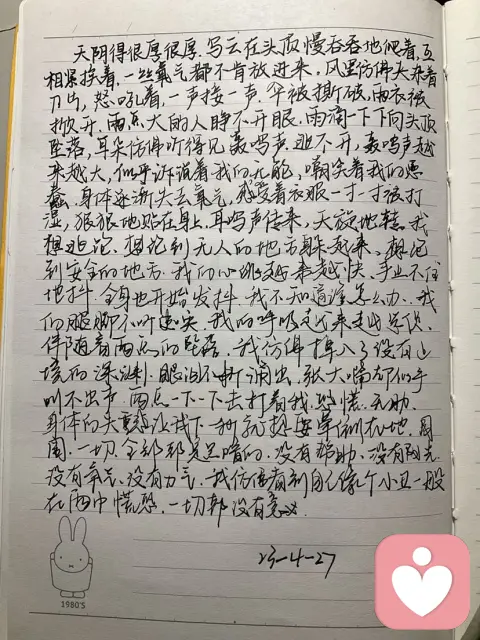 天阴得很厚很厚.乌云在头顶慢吞吞地爬着,互
相紧挨着,一丝氧气都不肯放进来,风里仿佛夹着
刀片,怒吼着,一声接一声,伞被撕破,雨衣被
掀开,雨点大的人睁不开眼,雨滴一下下向头顶
坠落,耳朵仿佛听得见轰鸣声.逃不开,轰鸣声越
来越大,似乎诉说着我的无能,嘲笑着我的愚
蠢.身体逐渐失去氧气,感受着衣服一寸一寸被打
湿,狠狠地贴在身上.耳鸣声传来,天旋地转.我
想逃跑.想跑到无人的地方躲起来、想跑
到安全的地方.我的心跳越来越快、手止不住
地抖.全身也开始发抖.我不知道该怎么办.我
的腿脚不听使唤.我的呼吸越来越
伴随着雨点的坠落.我仿佛掉入了没有边
境的深渊.眼泪不断涌出,张大嘴却似乎
叫不出声.雨点一下一下击打着我.恐慌.无助.
身体的失重感让我下一秒就想要
围.一切.全部都是黑暗的.没有帮助.没有阳光
没有氧气.没有力气.我仿佛看到自己像个小丑一般
在雨中慌恐.一切都没有意义.
23-4-27
1980'S